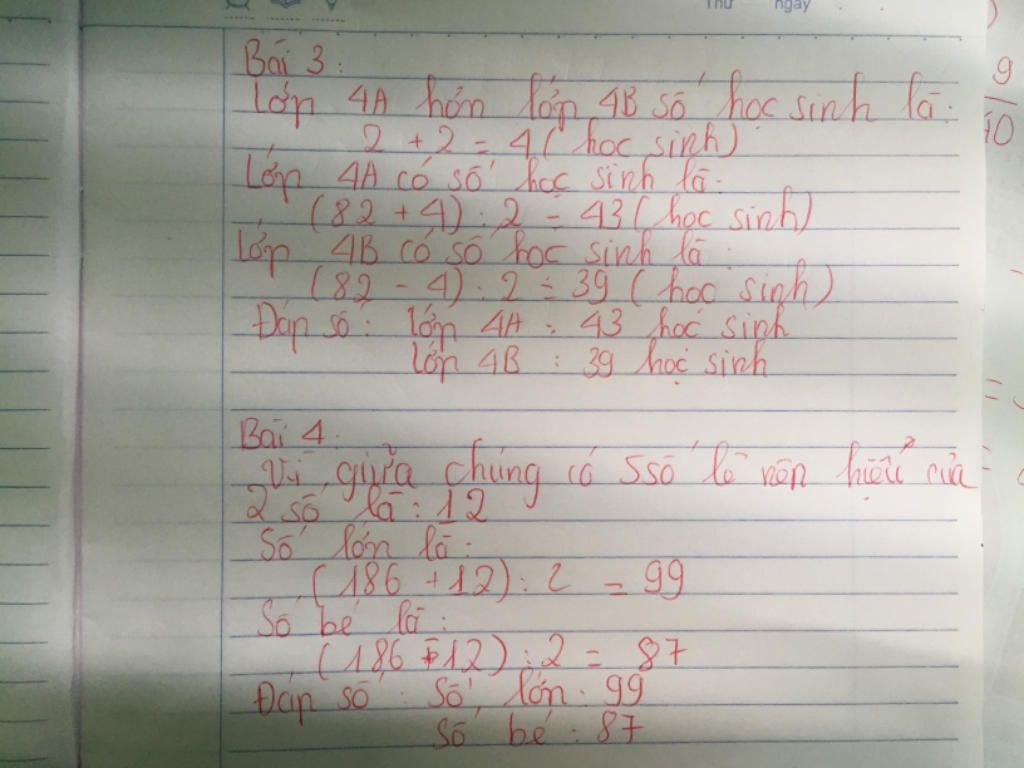 Thứ ngày
Bài 3:
Lớp 4A hơn lớp 4B số học sinh là:
2 + 2 = 4 ( học sinh)
Lớp 4A có số học sinh là:
(82 + 4) : 2 = 43 ( học sinh)
Lớp 4B có số học sinh là:
(82 - 4) : 2 = 39 ( học sinh)
Đáp số: lớp 4A : 43 học sinh
lớp 4B : 39 học sinh
Bài 4:
Vì giữa chúng có 5 số lẻ nên hiệu của
2 số là : 12
Số lớn là:
(186 + 12) : 2 = 99
Số bé là:
(186 - 12) : 2 = 87
Đáp số : Số lớn : 99
Số bé : 87
9
10